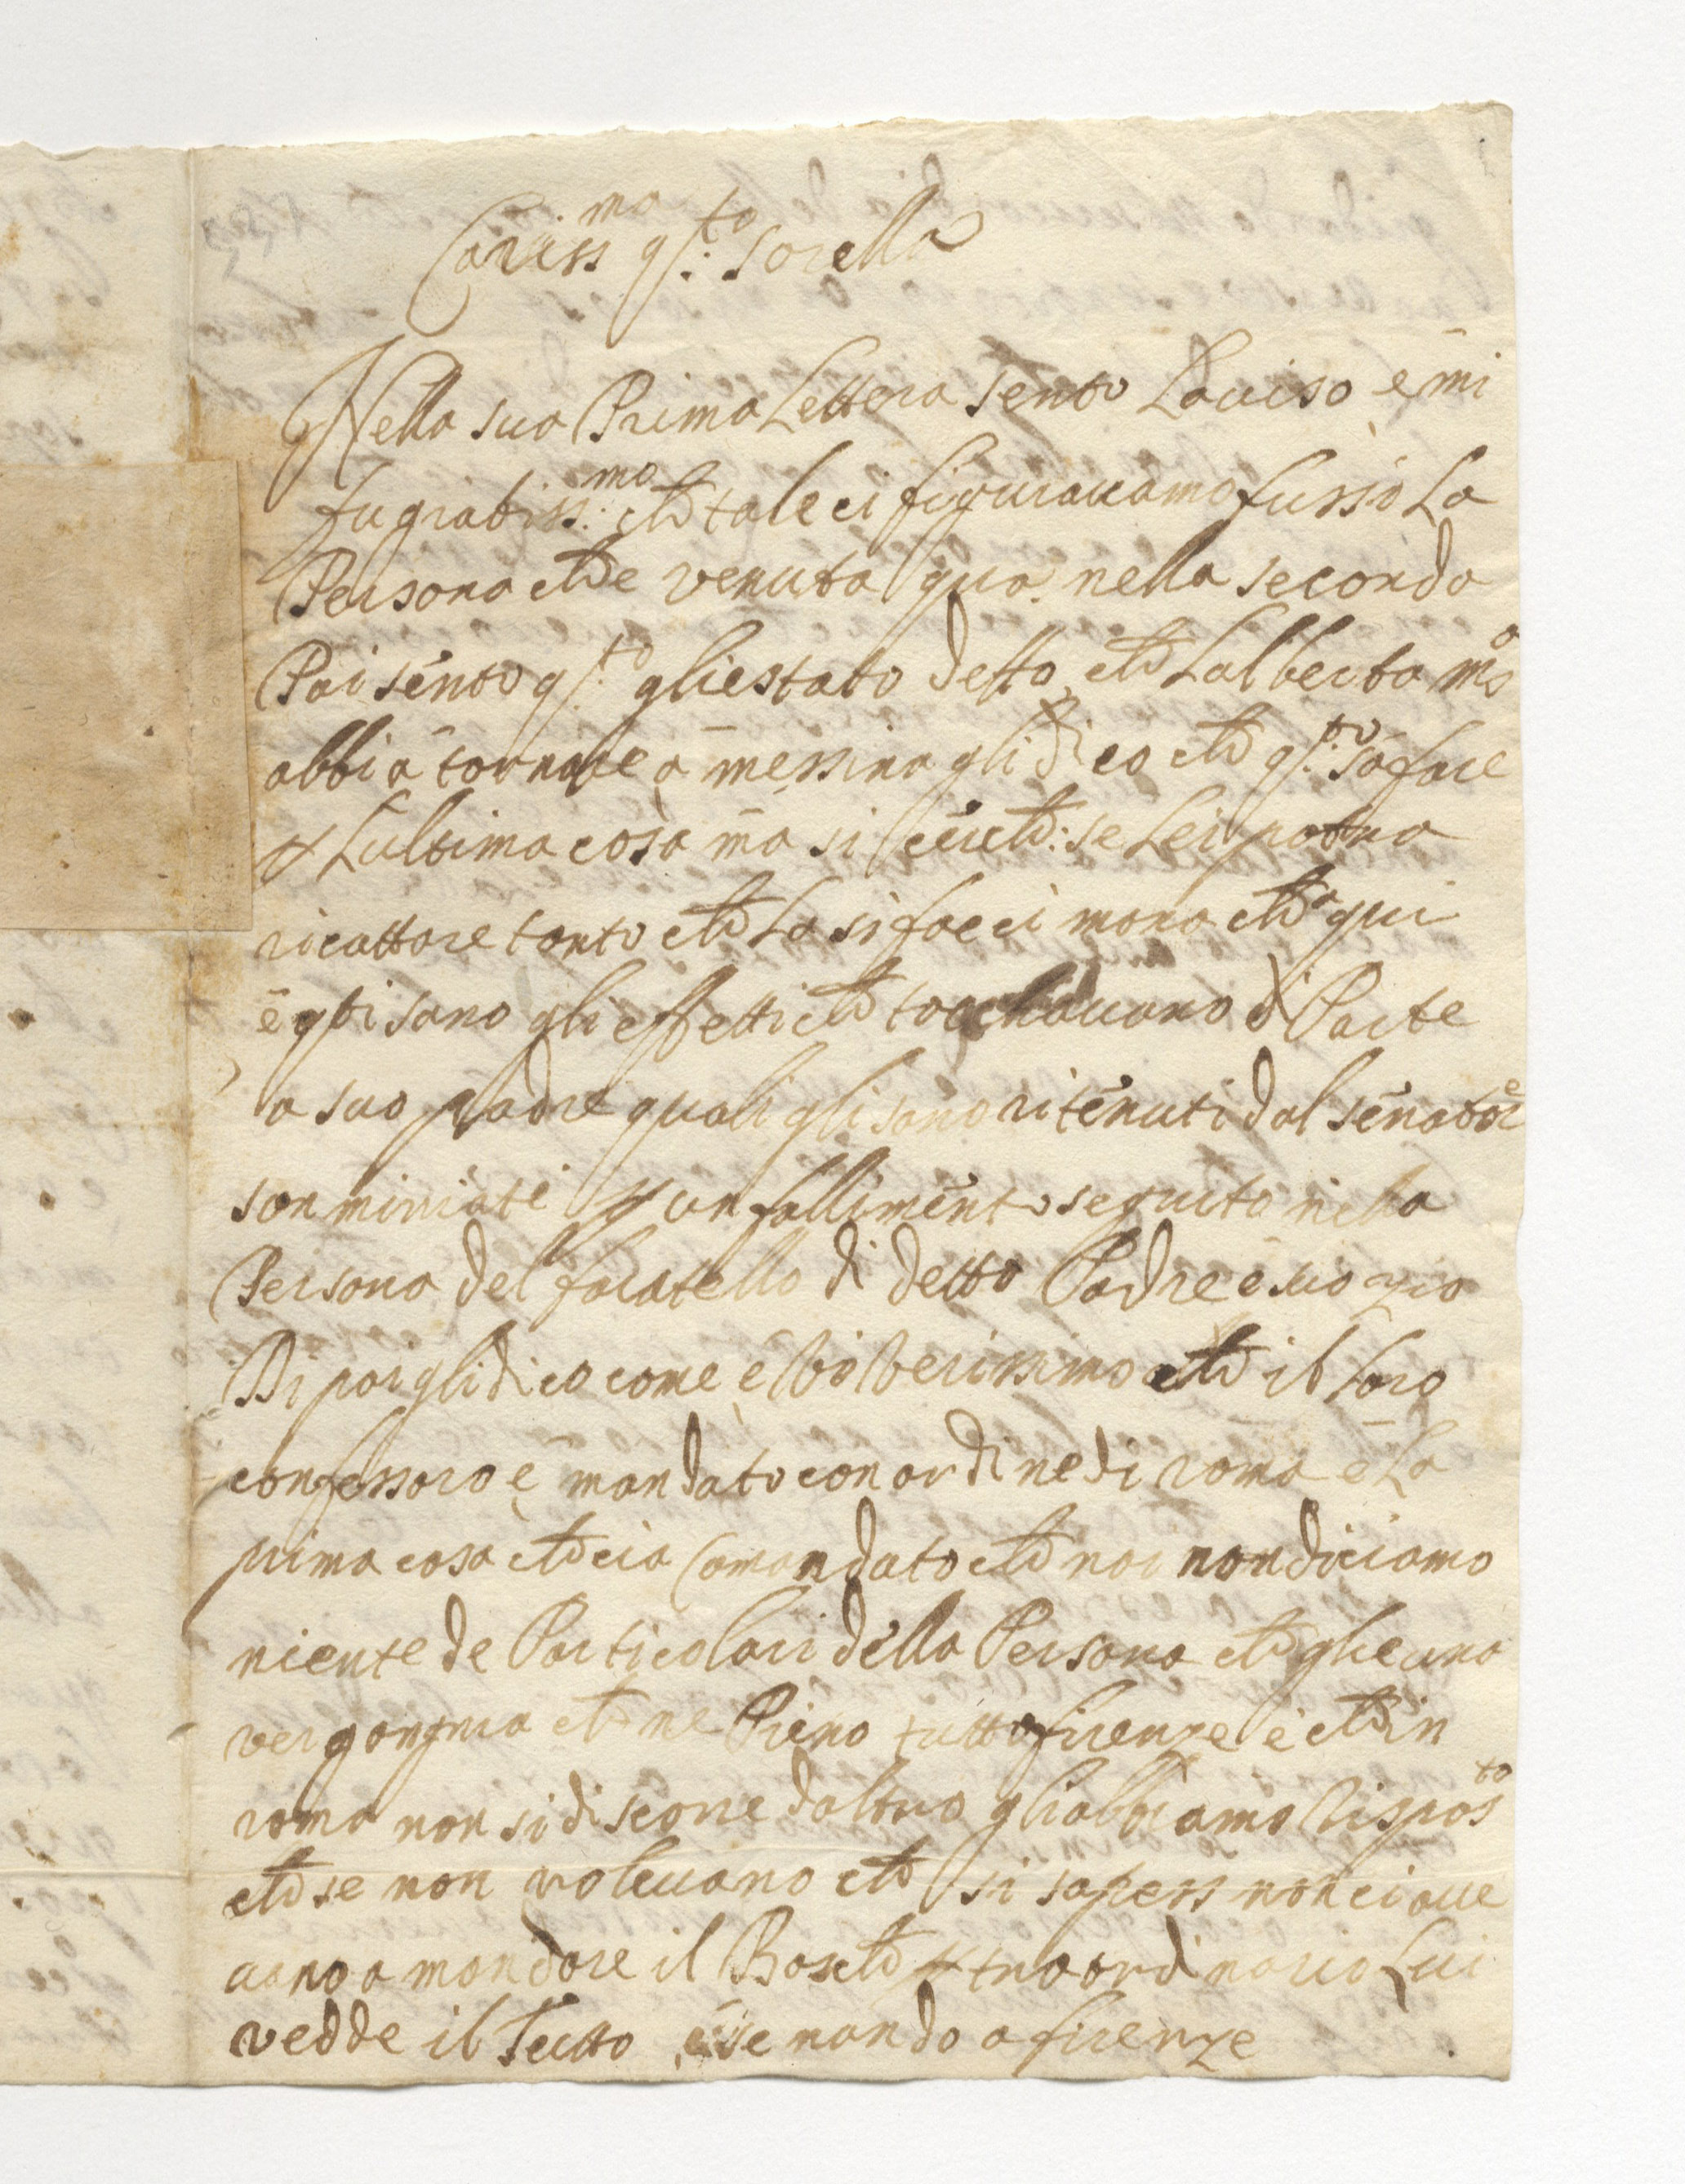 Cariss.mo q.to sorella
Nella sua Prima Lettera sento Lauiso e mi
fu gratiss.mo che tale ci figurauamo fussio La
Persona che e venuta qua nella seconda
Poi sento q.to gliestato detto che Lalberta
abbi a tornare a messina gli dico che q.to sa fare
Lultima cosa ma si se Lei potra
ricattare tanto che La si facci mona cha qui
e q.ti sono gli effetti che tocchauano di Parte
a suo padre quali gli sono ritenuti dal senatore
sonminiati p un fallimento seguito nella
Persona del fratello di detto Padre e suo zio
Di poi gli dico come e bi berissimo che il loro
confessoro e mandato con ordine di roma e La
prima cosa che cia Comandato che noi non diciamo
niente de Particolari della Persona che glie una
vergongnia che ne Pieno tutto firenze e che in
roma non si discorre daltro gliabbiamo Rispos.to
che se non voleuano che si sapess non ci aue
uano a mandare il che straordinario Lui
vedde il Tutto e se nando a firenze